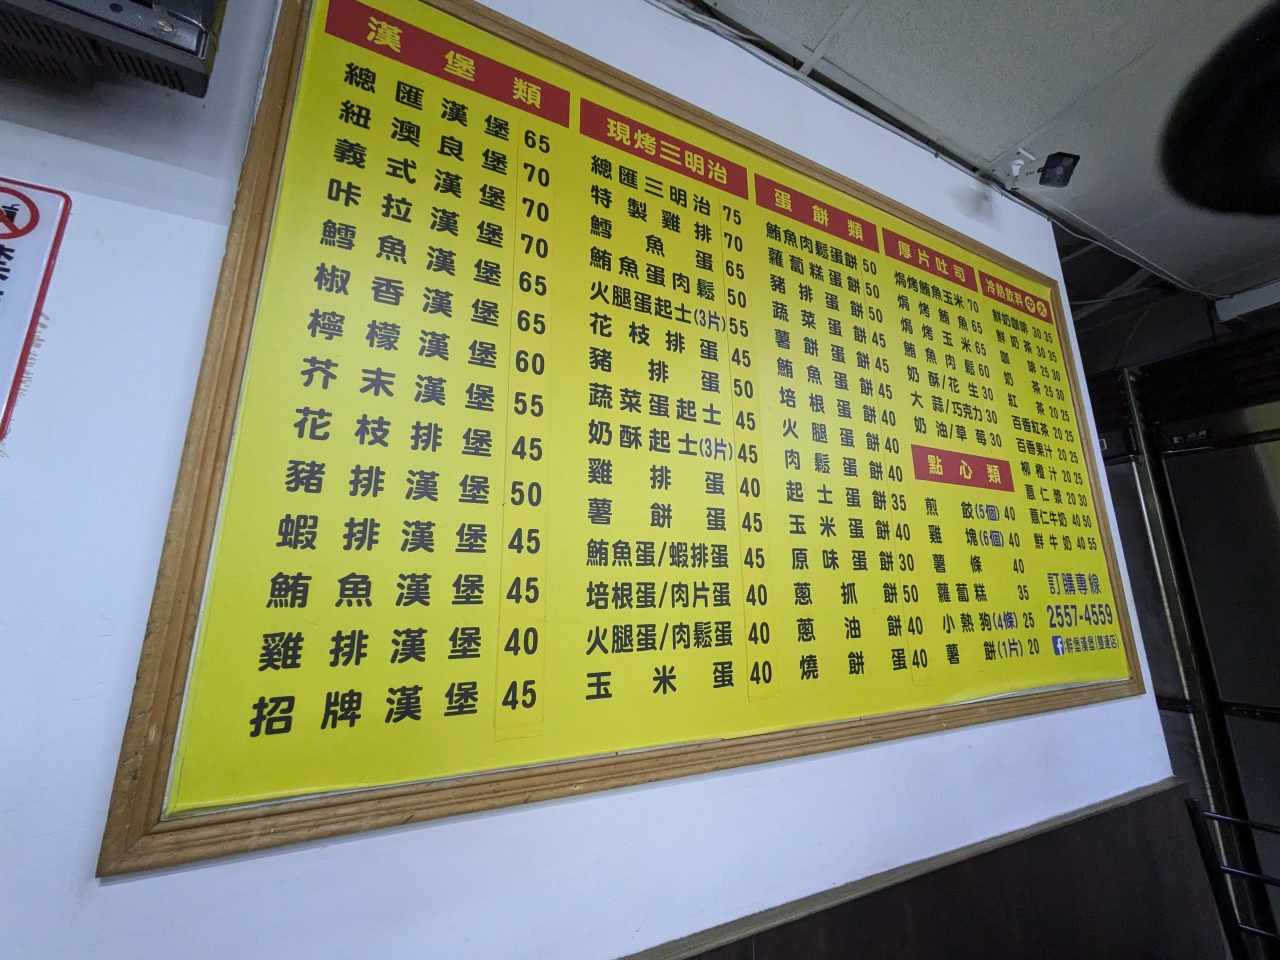 漢堡類
總匯漢堡 65
紐澳良堡 70
義式漢堡 70
咔拉漢堡 70
鱈魚漢堡 65
椒香漢堡 65
檸檬漢堡 60
芥末漢堡 55
花枝排堡 45
豬排漢堡 50
蝦排漢堡 45
鮪魚漢堡 45
雞排漢堡 40
招牌漢堡 45
現烤三明治
總匯三明治 75
特製雞排 70
鱈魚蛋 65
鮪魚蛋肉鬆 50
火腿蛋起士(3片) 55
花枝排蛋 45
豬排蛋 50
蔬菜蛋起士 45
奶酥起士(3片) 45
雞排蛋 40
薯餅蛋 45
鮪魚蛋/蝦排蛋 45
培根蛋/肉片蛋 40
火腿蛋/肉鬆蛋 40
玉米蛋 40
蛋餅類
鮪魚肉鬆蛋餅 50
蘿蔔糕蛋餅 50
豬排蛋餅 50
蔬菜蛋餅 45
薯餅蛋餅 45
鮪魚蛋餅 45
培根蛋餅 40
火腿蛋餅 40
肉鬆蛋餅 40
起士蛋餅 35
玉米蛋餅 40
原味蛋餅 30
蔥抓餅 50
蔥油餅 40
燒餅蛋 40
厚片吐司
焗烤鮪魚玉米 70
焗烤鮪魚 65
焗烤玉米 65
鮪魚肉鬆 60
奶酥/花生 30
大蒜/巧克力 30
奶油/草莓 30
點心類
煎餃(5個) 40
雞塊(6個) 40
薯條 40
蘿蔔糕 35
小熱狗(4條) 25
薯餅(1片) 20
冷熱飲料 中 大
鮮奶咖啡 30 35
鮮奶茶 30 35
咖啡 25 30
奶茶 25 30
紅茶 20 25
百香紅茶 20 25
百香果汁 20 25
柳橙汁 20 25
薏仁漿 20 30
薏仁牛奶 40 50
鮮牛奶 40 55
訂購專線
2557-4559
f:鮮堡漢堡(雙連店)